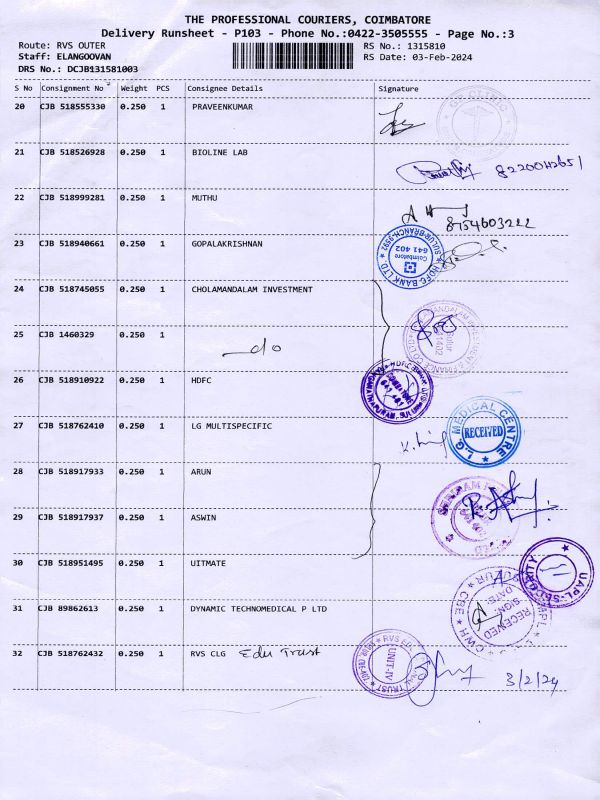 THE PROFESSIONAL COURIERS, COIMBATORE
Delivery Runsheet - P103 - Phone No.:0422-3505555 - Page No.:3
Route: RVS OUTER RS No.: 1315810
Staff: ELANGOOVAN RS Date: 03-Feb-2024
DRS No.: DCJB131581003
S No Consignment No Weight PCS Consignee Details Signature
20 CJB 518555330 0.250 1 PRAVEENKUMAR
CLINIC
21 CJB 518526928 0.250 1 BIOLINE LAB
8220042651
22 CJB 518999281 0.250 1 MUTHU
8754603222
23 CJB 518940661 0.250 1 GOPALAKRISHNAN
HDFC BANK LTD. SULUR-BRANCH-3592 Coimbatore 641 402
24 CJB 518745055 0.250 1 CHOLAMANDALAM INVESTMENT
25 CJB 1460329 0.250 1 do
26 CJB 518910922 0.250 1 HDFC
27 CJB 518762410 0.250 1 LG MULTISPECIFIC
L.G. MEDICAL CENTRE RECEIVED
28 CJB 518917933 0.250 1 ARUN
29 CJB 518917937 0.250 1 ASWIN
30 CJB 518951495 0.250 1 UITMATE
UAPL-SECURITY
31 CJB 89862613 0.250 1 DYNAMIC TECHNOMEDICAL P LTD
RECEIVED SIGN: DATE:
32 CJB 518762432 0.250 1 RVS CLG Edu Trust
UNIT-IV
3/2/24